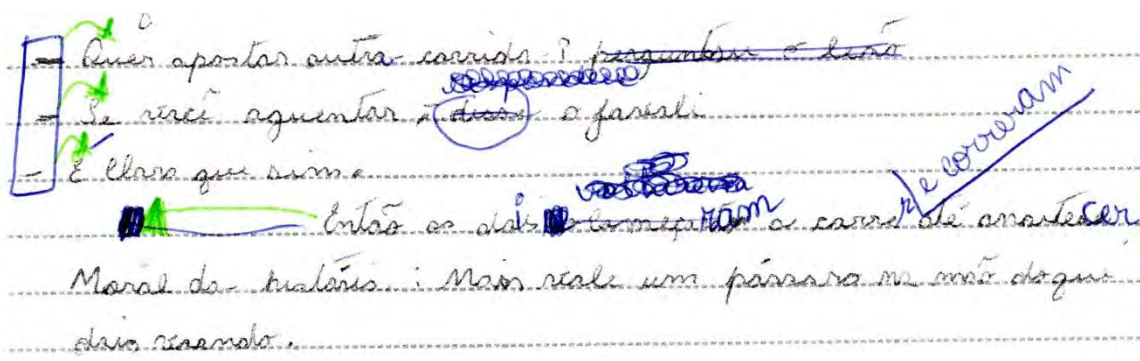 - Quer apostar outra corrida? perguntou o leão
- Se você aguentar, - disse o javali
- É Claro que sim.
Então os dois começaram a correr até anoitecer e correram
Moral da história: Mais vale um pássaro na mão do que
dois voando.